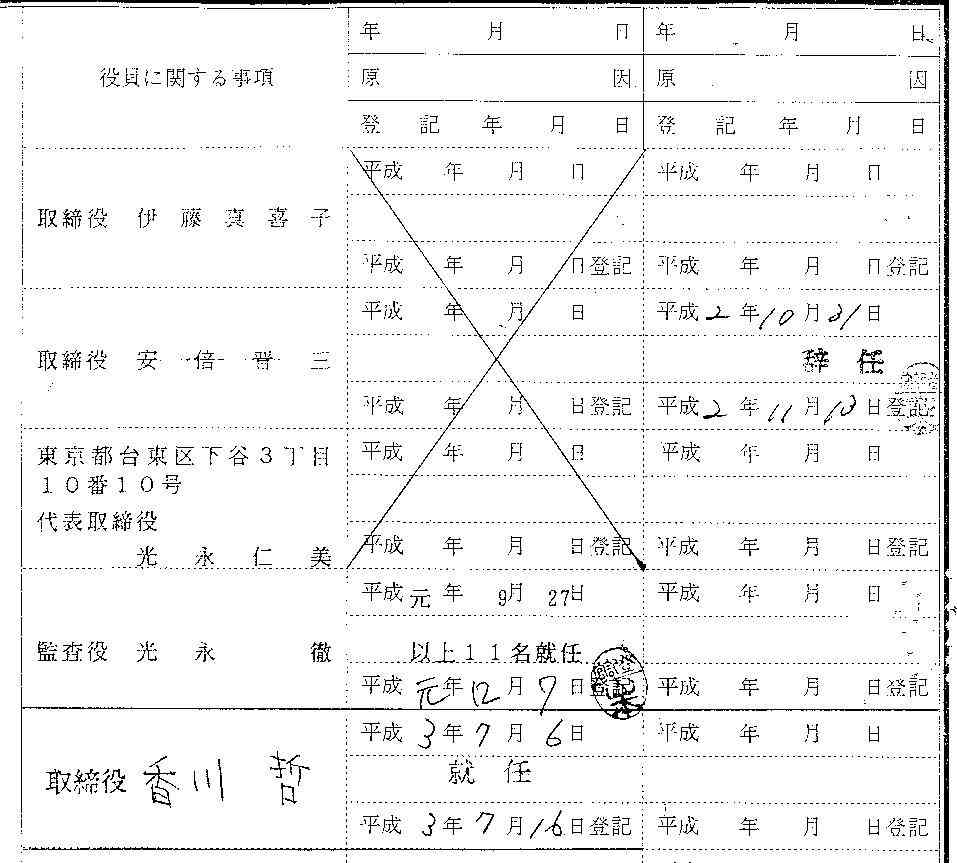 役員に関する事項
年 月 日 年 月 日
原 因 原 因
登 記 年 月 日 登 記 年 月 日
平成 年 月 日 平成 年 月 日
取締役 伊 藤 真 喜 子
平成 年 月 日登記 平成 年 月 日登記
平成 年 月 日 平成 2 年 10 月 31 日
取締役 安 倍 晋 三
辞 任
平成 年 月 日登記 平成 2 年 11 月 13 日登記
東京都台東区下谷3丁目 平成 年 月 日 平成 年 月 日
10番10号
代表取締役
光 永 仁 美 平成 年 月 日登記 平成 年 月 日登記
平成 元 年 9月 27日 平成 年 月 日
監査役 光 永 徹 以上11名就任
平成 元 年 12 月 7 日登記 平成 年 月 日登記
平成 3 年 7 月 6 日 平成 年 月 日
取締役 香川 哲 就 任
平成 3 年 7 月 16 日登記 平成 年 月 日登記